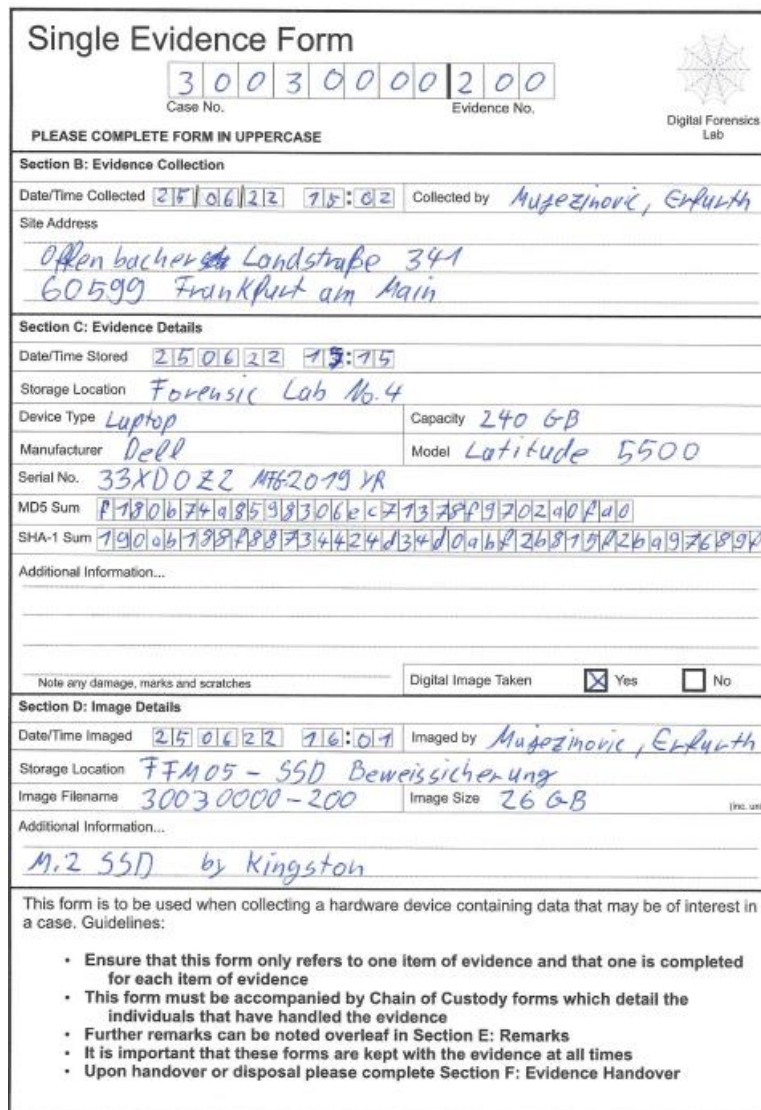 Single Evidence Form
30030000 200
Case No. Evidence No.
Digital Forensics
Lab
PLEASE COMPLETE FORM IN UPPERCASE
Section B: Evidence Collection
Date/Time Collected 25/06/22 15:02 Collected by Mujezinovic, Erfurth
Site Address
Offenbacher Landstraße 341
60599 Frankfurt am Main
Section C: Evidence Details
Date/Time Stored 250622 15:15
Storage Location Forensic Lab No.4
Device Type Laptop Capacity 240 GB
Manufacturer Dell Model Latitude 5500
Serial No. 33XD0Z2 2019 YR
MD5 Sum f180b74a8598306ec71378f9702a0fa0
SHA-1 Sum
Additional Information...
Note any damage, marks and scratches Digital Image Taken Yes No
Section D: Image Details
Date/Time Imaged 250622 16:01 Imaged by Mujezinovic, Erfurth
Storage Location FFM05 - SSD Beweissicherung
Image Filename 30030000-200 Image Size 26 GB
Additional Information...
M.2 SSD by Kingston
This form is to be used when collecting a hardware device containing data that may be of interest in
a case. Guidelines:
• Ensure that this form only refers to one item of evidence and that one is completed
for each item of evidence
• This form must be accompanied by Chain of Custody forms which detail the
individuals that have handled the evidence
• Further remarks can be noted overleaf in Section E: Remarks
• It is important that these forms are kept with the evidence at all times
• Upon handover or disposal please complete Section F: Evidence Handover